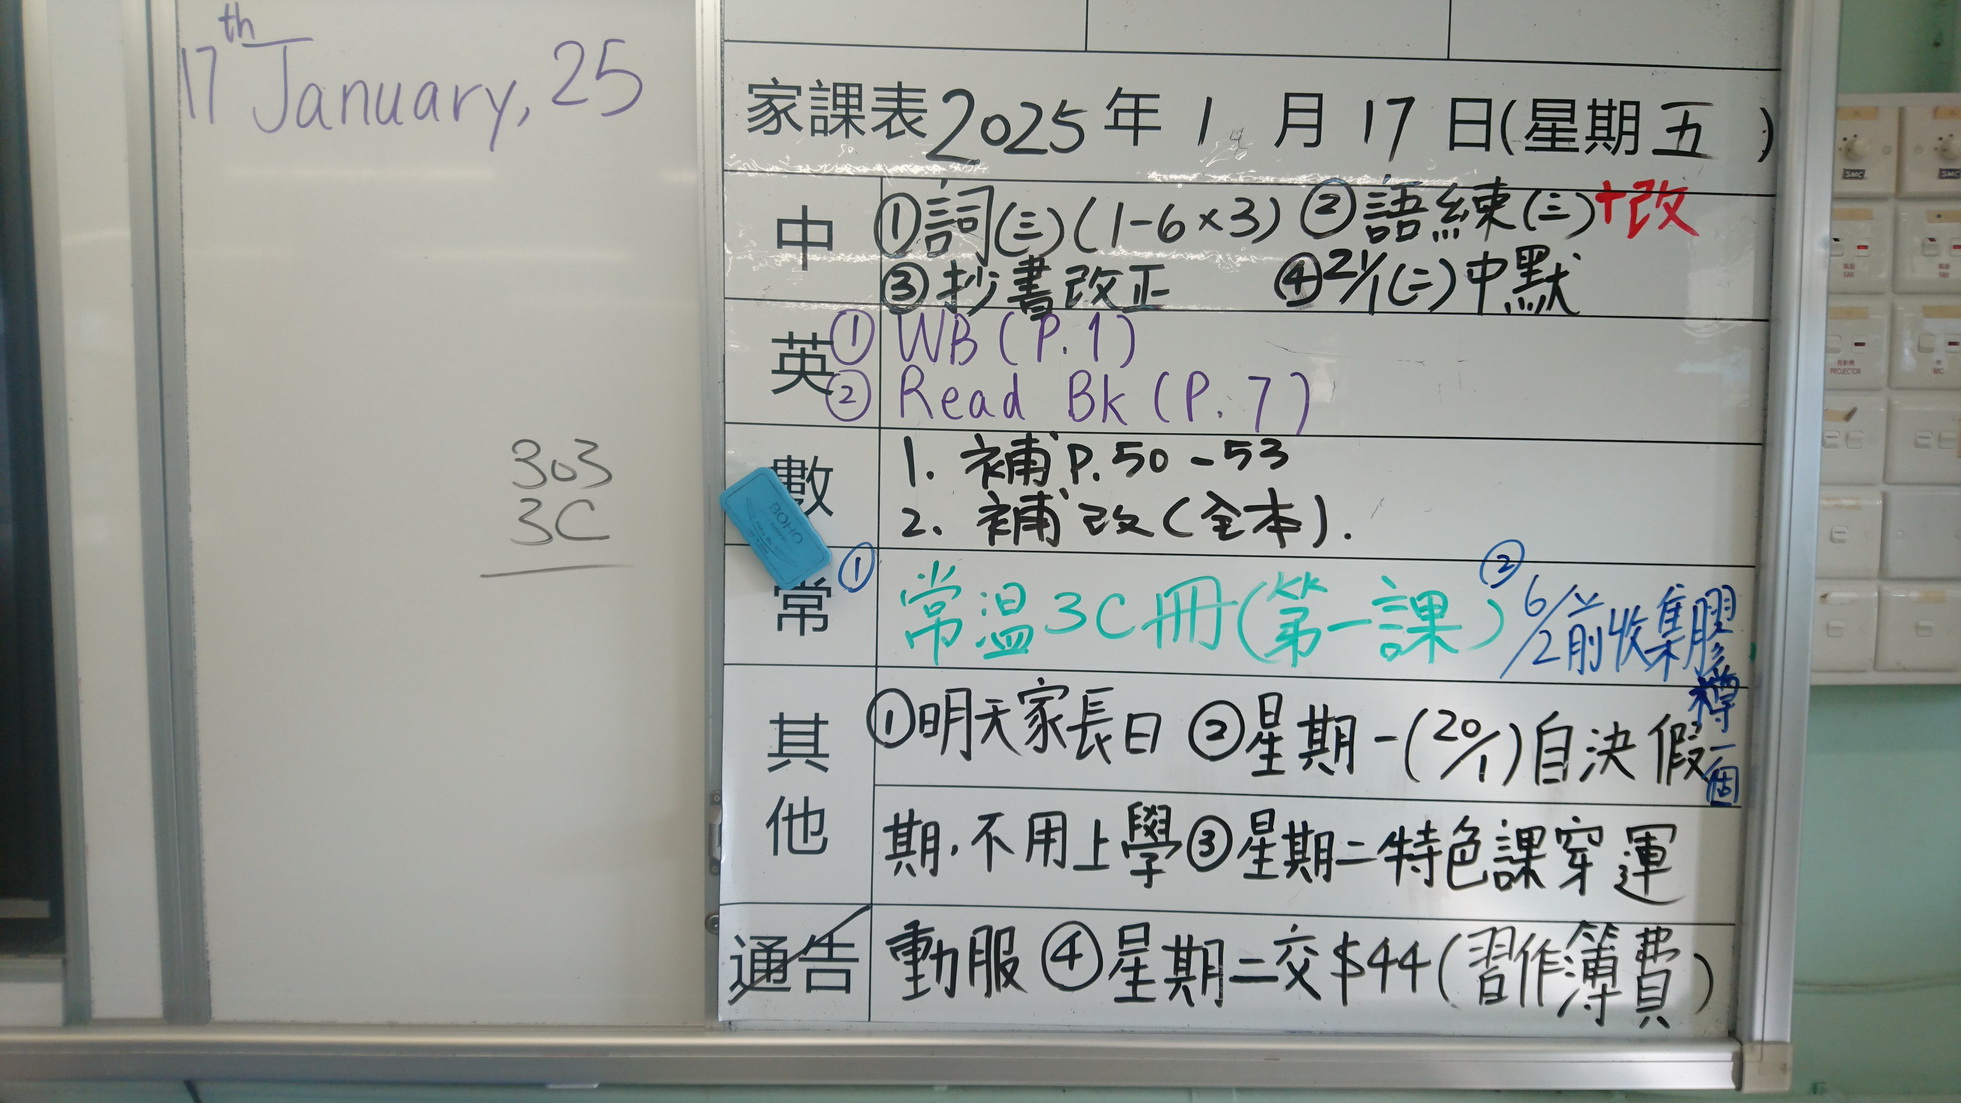 17th January, 25
303
3C
家課表2025年1月17日(星期五)
中
①詞(三)(1-6×3) ②語練(三)+改
③抄書改正 ④21/1(二)中默
英
① WB (P.1)
② Read Bk (P.7)
數
1. 補P.50-53
2. 補改(全本).
常
①常溫3C冊(第一課) ②6/2前收集膠
樽一個
其他
①明天家長日 ②星期一(20/1)自決假
期,不用上學③星期二特色課穿運
通告
動服④星期二交$44(習作簿費)
BOHO
SMC
SMC
FAN
FAN
PROJECTOR
MIC